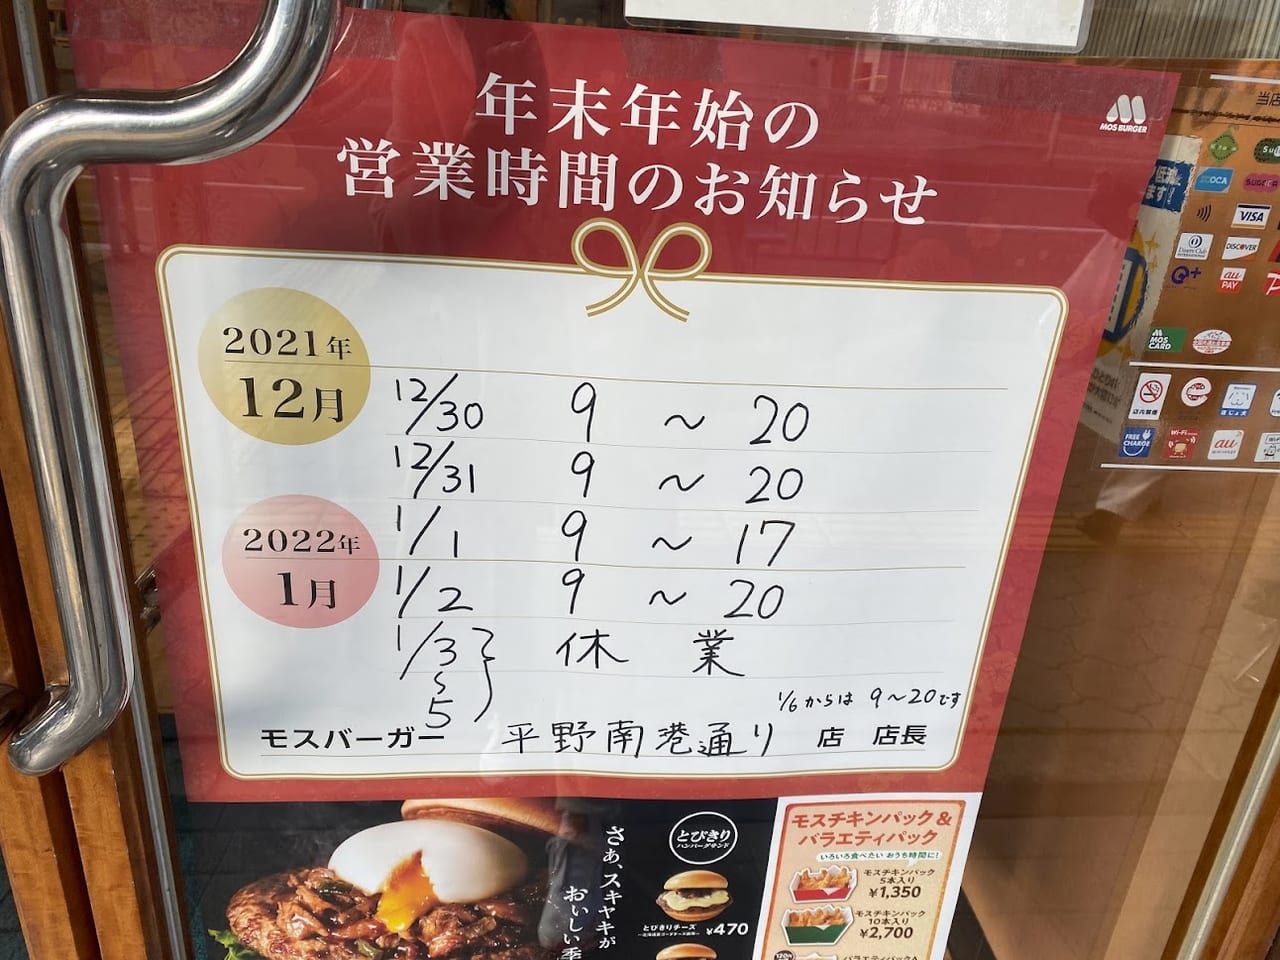 年末年始の
営業時間のお知らせ
MOS BURGER
2021年
12月
12/30 9 〜 20
12/31 9 〜 20
2022年
1月
1/1 9 〜 17
1/2 9 〜 20
1/3〜5 休業
1/6からは 9〜20です
モスバーガー 平野南港通り 店 店長
さぁ、スキヤキが
おいしい季
とびきり
ハンバーグサンド
とびきりチーズ
¥470
モスチキンパック&
バラエティパック
いろいろ食べたい おうち時間に!
モスチキンパック
5本入り
¥1,350
モスチキンパック
10本入り
¥2,700
当店
VISA
Diners Club
INTERNATIONAL
DISCOVER
au
PAY
MOS
CARD
店内禁煙
FREE
CHARGE
Wi-Fi
au